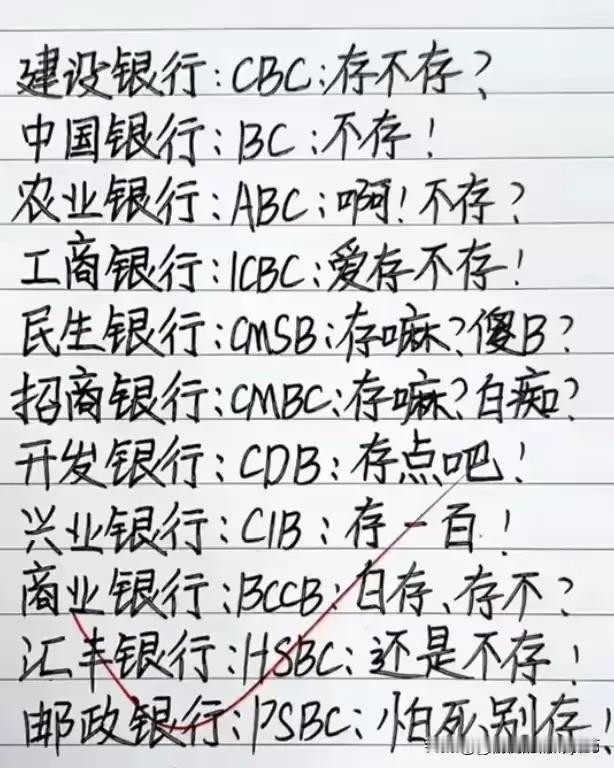 建设银行:CBC:存不存?
中国银行:BC:不存!
农业银行:ABC:啊!不存?
工商银行:ICBC:爱存不存!
民生银行:CMSB:存嘛?傻B?
招商银行:CMBC:存嘛?白痴?
开发银行:CDB:存点吧!
兴业银行:CIB:存一百!
商业银行:BCCB:白存、存不?
汇丰银行:HSBC:还是不存!
邮政银行:PSBC:怕死、别存!